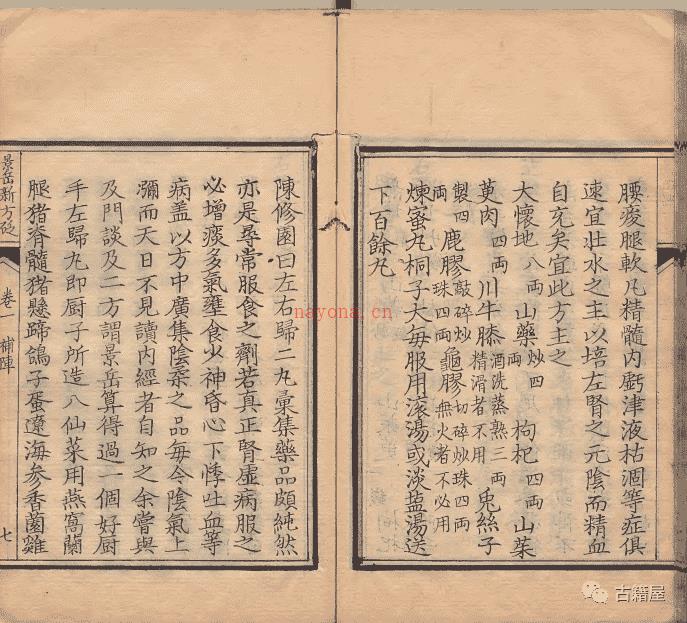 腰痠腿軟凡精髓內虧津液枯涸等症俱
速宜壯水之主以培左腎之元陰而精血
自充矣宜此方主之
大懷地八兩 山藥炒四兩 枸杞四兩 山茱
萸肉四兩 川牛膝酒洗蒸熟三兩精滑者不用 兎絲子
製四兩 鹿膠敲碎炒珠四兩 龜膠切碎炒珠四兩無火者不必用
煉蜜丸桐子大每服用滾湯或淡盐湯送
下百餘丸
陳修園曰左右歸二丸彙集藥品頗純然
亦是尋常服食之劑若真正腎虛病服之
必增痰多氣壅食少神昏心下悸吐血等
病盖以方中廣集陰柔之品每令陰氣上
瀰而天日不見讀內經者自知之余嘗與
及門談及二方謂景岳算得過一個好厨
手左歸丸即厨子所造八仙菜用燕窩蘭
腿猪脊髓猪懸蹄鴿子蛋遼海參香菌雞
景岳新方砭
卷一 補陣
七
nayona.cn
古籍屋